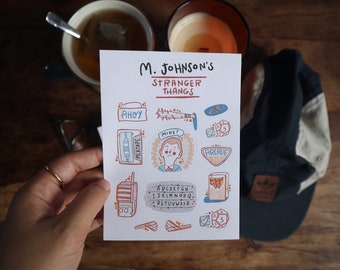 M. JOHNSON'S
STRANGER
THANGS
AHOY
MIKE!
MIXTAPE
ABCDEFGH
IJKLMNOPQ
RSTUVWXYZ